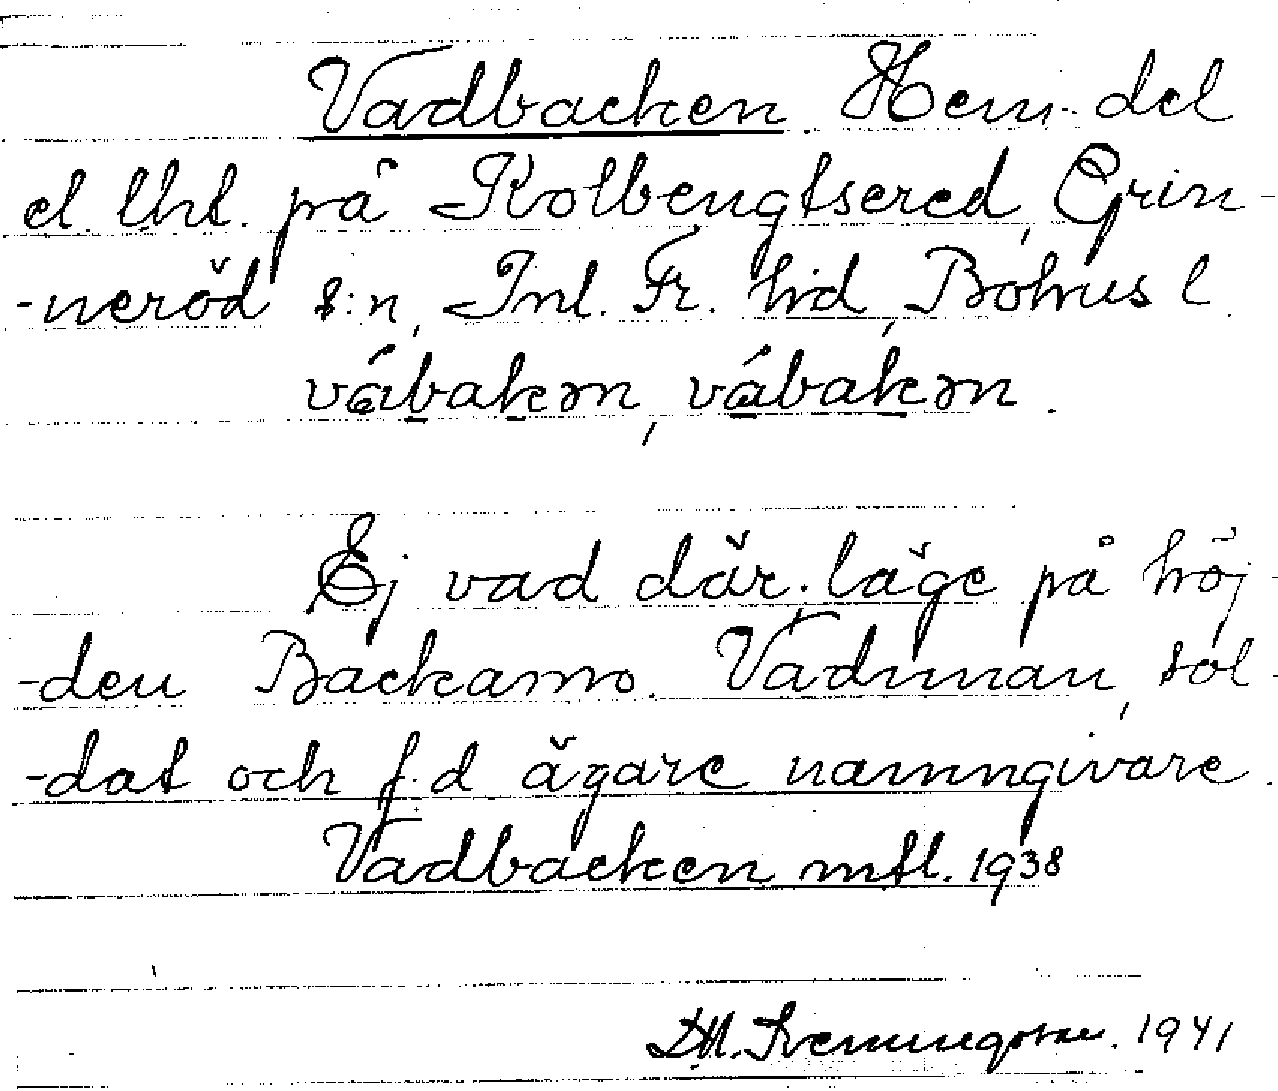 Vadbacken Hem.del
el. lht. på Kolbengtsered, Grin-
-neröd s:n, Inl. Fr. hd, Bohus l.
vábakɘn, vábakɘn.
Ej vad där. läge på höj-
-den Backamo. Vadman, sol-
-dat och f.d ägare namngivare.
Vadbacken mtl. 1938
1941